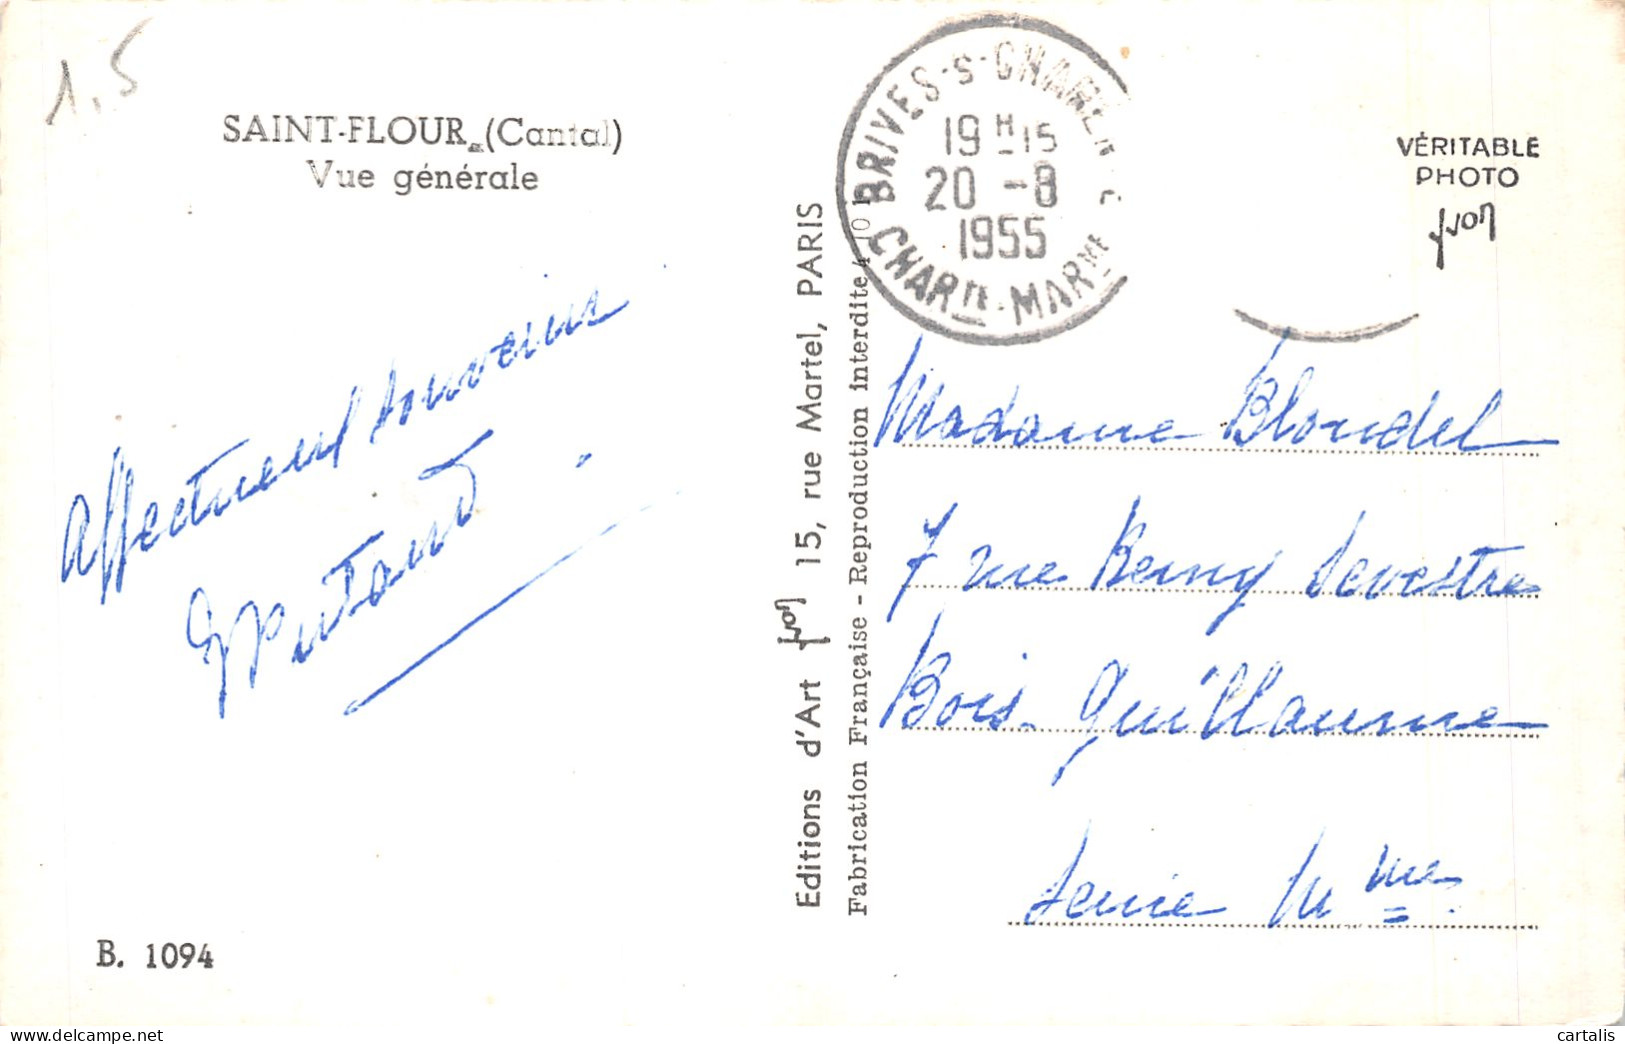 1,5
SAINT-FLOUR (Cantal)
Vue générale
Affectueux souvenirs
B. 1094
Editions d'Art Yvon 15, rue Martel, PARIS
Fabrication Française - Reproduction interdite
BRIVES-S-CHAREN
19H15
20 -8
1955
CHARTE-MARME
VÉRITABLE
PHOTO
Yvon
Madame Blondel
7 rue Remy Sevestre
Bois-Guillaume
Seine Mme
cartalis